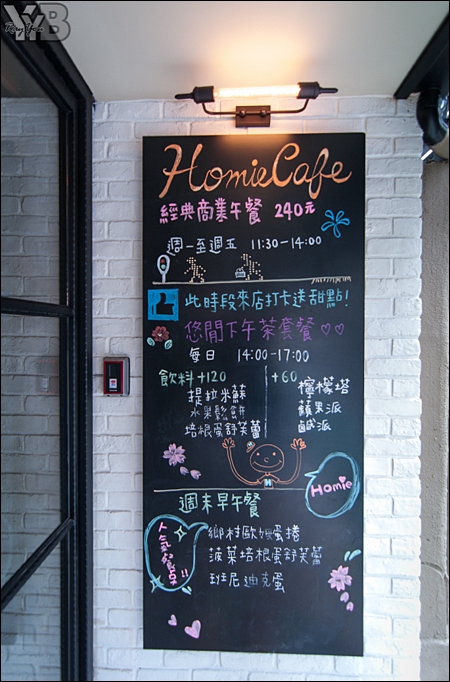 YYB
HomieCafe
經典商業午餐 240元
週一至週五 11:30-14:00
此時段來店打卡送甜點!
悠閒下午茶套餐♡♡
每日 14:00-17:00
飲料+120
提拉米蘇
水果鬆餅
培根蛋舒芙蕾
+60
檸檬塔
蘋果派
鹹派
H
Homie
週末早午餐
人氣餐點!!
鄉村歐姆蛋捲
菠菜培根蛋舒芙蕾
班尼迪克蛋